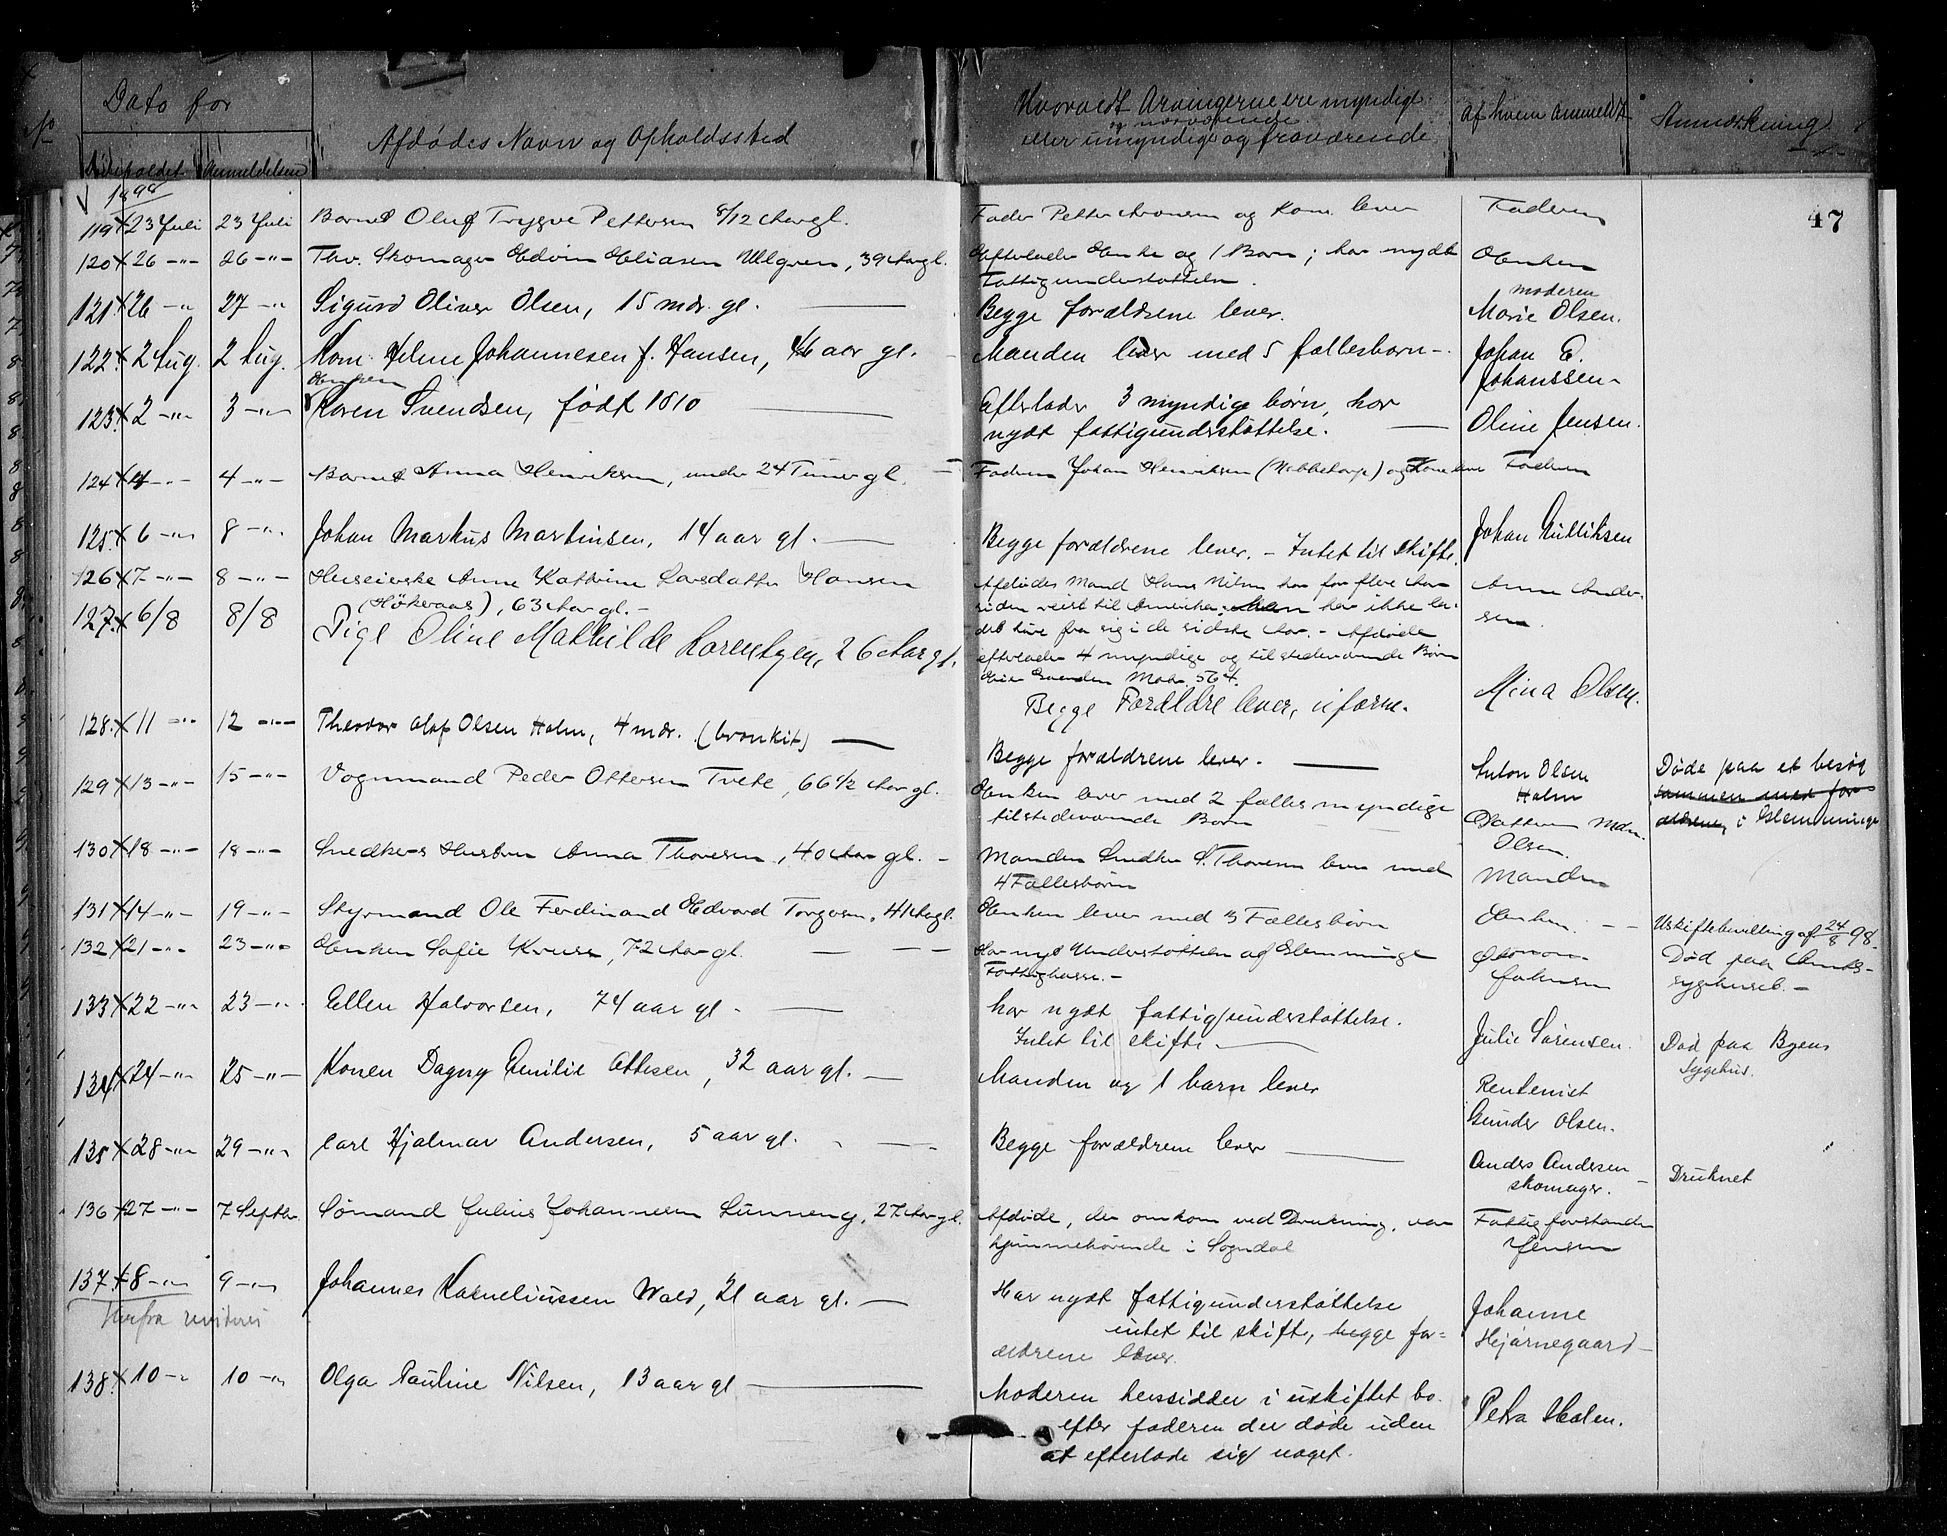 No
Dato for
Dödsfaldet Anmeldelsen
Afdødes Navn og Opholdssted
Hvorvidt Arvingerne ere myndige
og nærværende
eller umyndige og fraværende
Af hvem anmeldt
Anmærkning
47
1898
119 x 23 Juli 23 Juli Barnet Oluf Trygve Pettersen 8/12 Aar gl. Fader Petter Aronsen og Kone lever Faderen
120 x 26 -"- 26 -"- Fhv. Skomager Edvin Eliasen Ullgren, 39 Aar gl. Efterlader Enke og 1 Barn; har nydt Enken
Fattigunderstøttelse.
121 x 26 -"- 27 -"- Sigurd Oliver Olsen, 15 mdr. gl. Begge forældrene lever. moderen
Marie Olsen.
122 x 2 Aug. 2 Aug. Kone Helene Johannesen f. Hansen, 46 aar gl. Manden lever med 5 fællesbørn -. Johan E.
Johanssen -
Enken
123 x 2 -"- 3 -"- Karen Svendsen, født 1810 Efterlader 3 myndige børn, har Oline Jensen.
nydt fattigunderstøttelse.
124 x 4 -"- 4 -"- Barnet Anna Henriksen, under 24 Timer gl. Faderen Johan Henriksen (Nabbetorp) og Kone lever Faderen
125 x 6 -"- 8 -"- Johan Markus Martinsen, 14 aar gl. Begge forældrene lever. - Intet til skifte. Johan Gulliksen
126 x 7 -"- 8 -"- Huseierske Anne Kathrine Larsdatter Hansen Afdødes Mand Hans Nilsen har for flere Aar Anne Ander-
(Høkeraas), 63 Aar gl. - siden reist til Amerika. Men har ikke la- sen.
det høre fra sig i de sidste Aar. - Afdøde
efterlader 4 myndige og tilstedeværende Børn
Eier Gaarden Matr. 564.
127 x 6/8 8/8 Pige Oline Mathilde Lorentzen, 26 Aar gl. Begge Forældre lever, uiførne. Mina Olsen.
128. x 11 -"- 12 -"- Theodor Olaf Olsen Holm, 4 mdr. (bronkit) Begge forældrene lever. Anton Olsen
Holm
Døde paa et besøg
sammen med for-
ældrene, i Glemminge
129 x 13 -"- 15 -"- Vognmand Peder Ottersen Tvete, 66 1/2 Aar gl. Enken lever med 2 fælles myndige Datteren Mdm.
tilstedeværende Børn Olsen.
130 x 18 -"- 18 -"- Snedkers Hustru Anna Thoresen, 40 Aar gl. - Manden Snedker S. Thoresen lever med Manden
4 Fællesbørn
131 x 14 -"- 19 -"- Styrmand Ole Ferdinand Edvard Torgersen, 41 Aar gl. Enken lever med 3 Fællesbørn Enken. - - Uskiftebevilling af 24/8 98.
132 x 21 -"- 23 -"- Enken Sofie Kruse, 72 Aar gl. Har nydt Understøttelse af Glemminge
Fattigkasse. - Johnsen
Død paa Amts-
sygehuset. -
133 x 22 -"- 23 -"- Ellen Halvorsen, 74 aar gl - har nydt fattigunderstøttelse. Julie Sørensen. Død paa Byens
Intet til skifte. Sygehus.
134 x 24 -"- 25 -"- Konen Dagny Emilie Ottesen, 32 aar gl. Manden og 1 barn lever Rentenist
Gunder Olsen.
135 x 28 -"- 29 -"- Carl Hjalmar Andersen, 5 aar gl. Begge forældrene lever Anders Andersen
skomager. - Druknet
136 x 27 -"- 7 Septbr. Sømand Julius Johannesen Lunneng, 27 Aar gl. Afdøde, der omkom ved Drukning, var Fattigforstander
hjemmehørende i Sogndal Jensen
137 x 8 -"- 9 -"- Johannes Korneliussen Wald, 21 aar gl. Har nydt fattigunderstøttelse Johanne
intet til skifte, begge for= Hjørnegaard -
ældrene lever.
Herfra revideret
138. x 10 -"- 10 -"- Olga Pauline Nilsen, 13 aar gl Moderen hensidder i uskiftet bo Petra Holen.
efter faderen der døde uden
at efterlade sig noget.